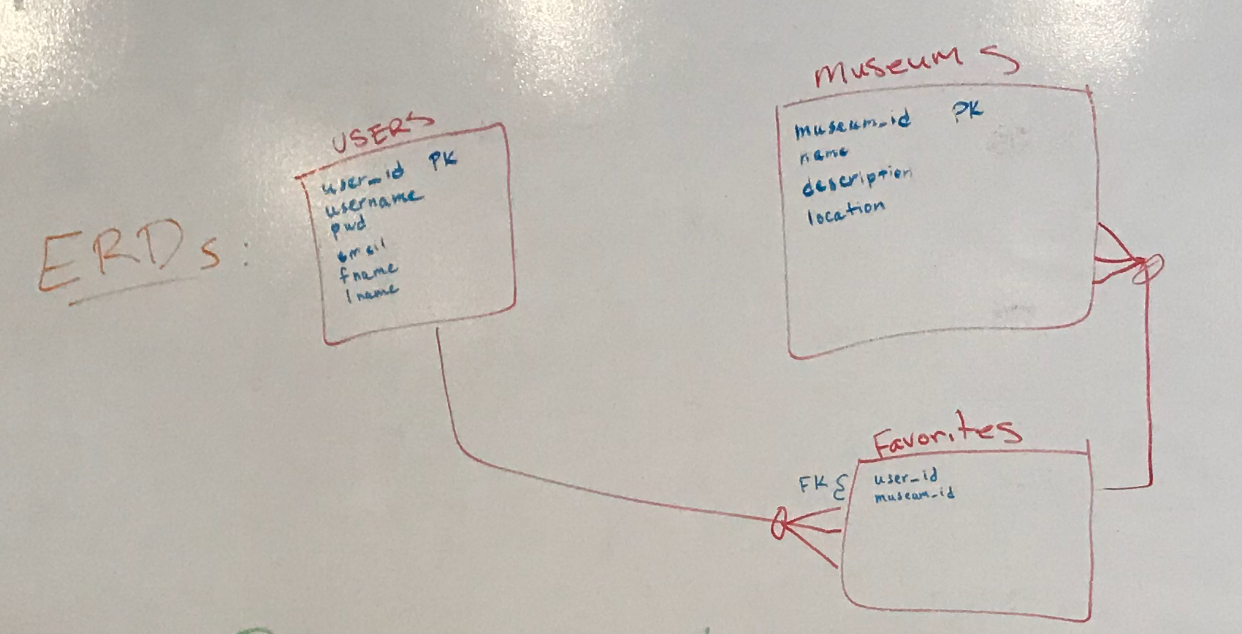 ERDs:
USERS
user_id PK
username
pwd
email
fname
lname
Museums
museum_id PK
name
description
location
Favorites
FK
user_id
museum_id